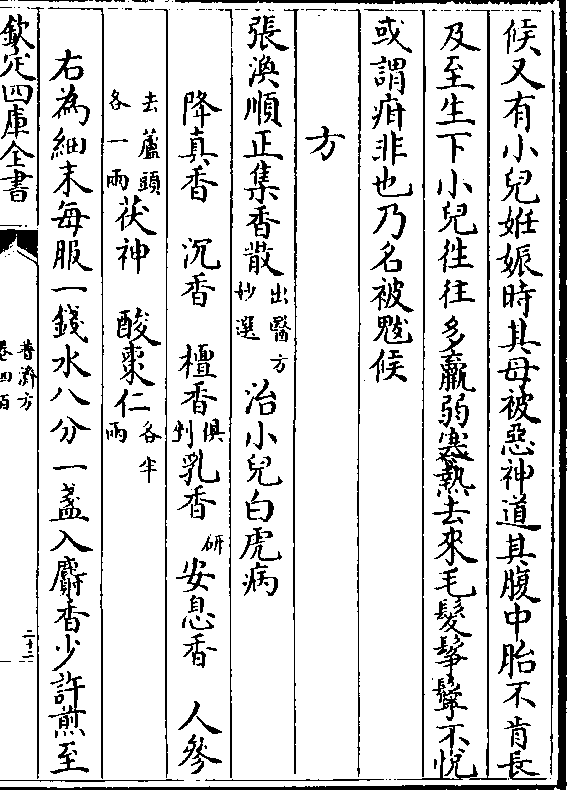 候又有小兒姙娠時其母被惡神道其腹中胎不肯長
及至生下小兒往往多羸弱寒熱去來毛髮鬇鬡不悅
或謂疳非也乃名被鬾候
方
張渙順正集香散出醫方妙選治小兒白虎病
降真香 沉香 檀香俱剉乳香研 安息香 人參
去蘆頭各一兩茯神 酸棗仁各半兩
右為細末每服一錢水八分一盞入麝香少許煎至
欽定四庫全書 普濟方 卷四百 二十二